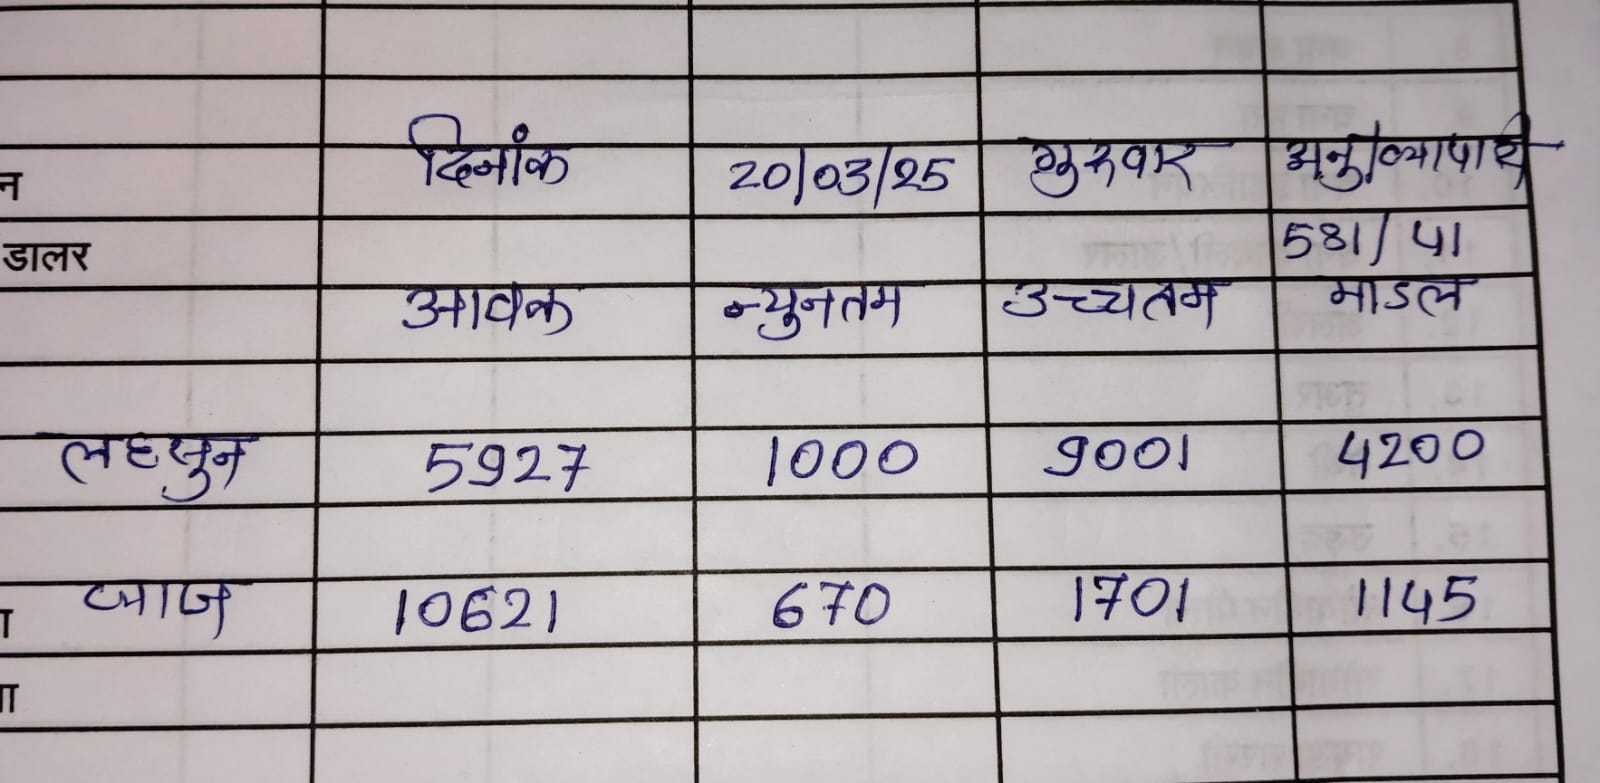 न दिनांक 20/03/25 गुरुवार अनु/व्यापारी
डालर 581/41
आवक न्युनतम उच्चतम माडल
लहसुन 5927 1000 9001 4200
प्याज 10621 670 1701 1145